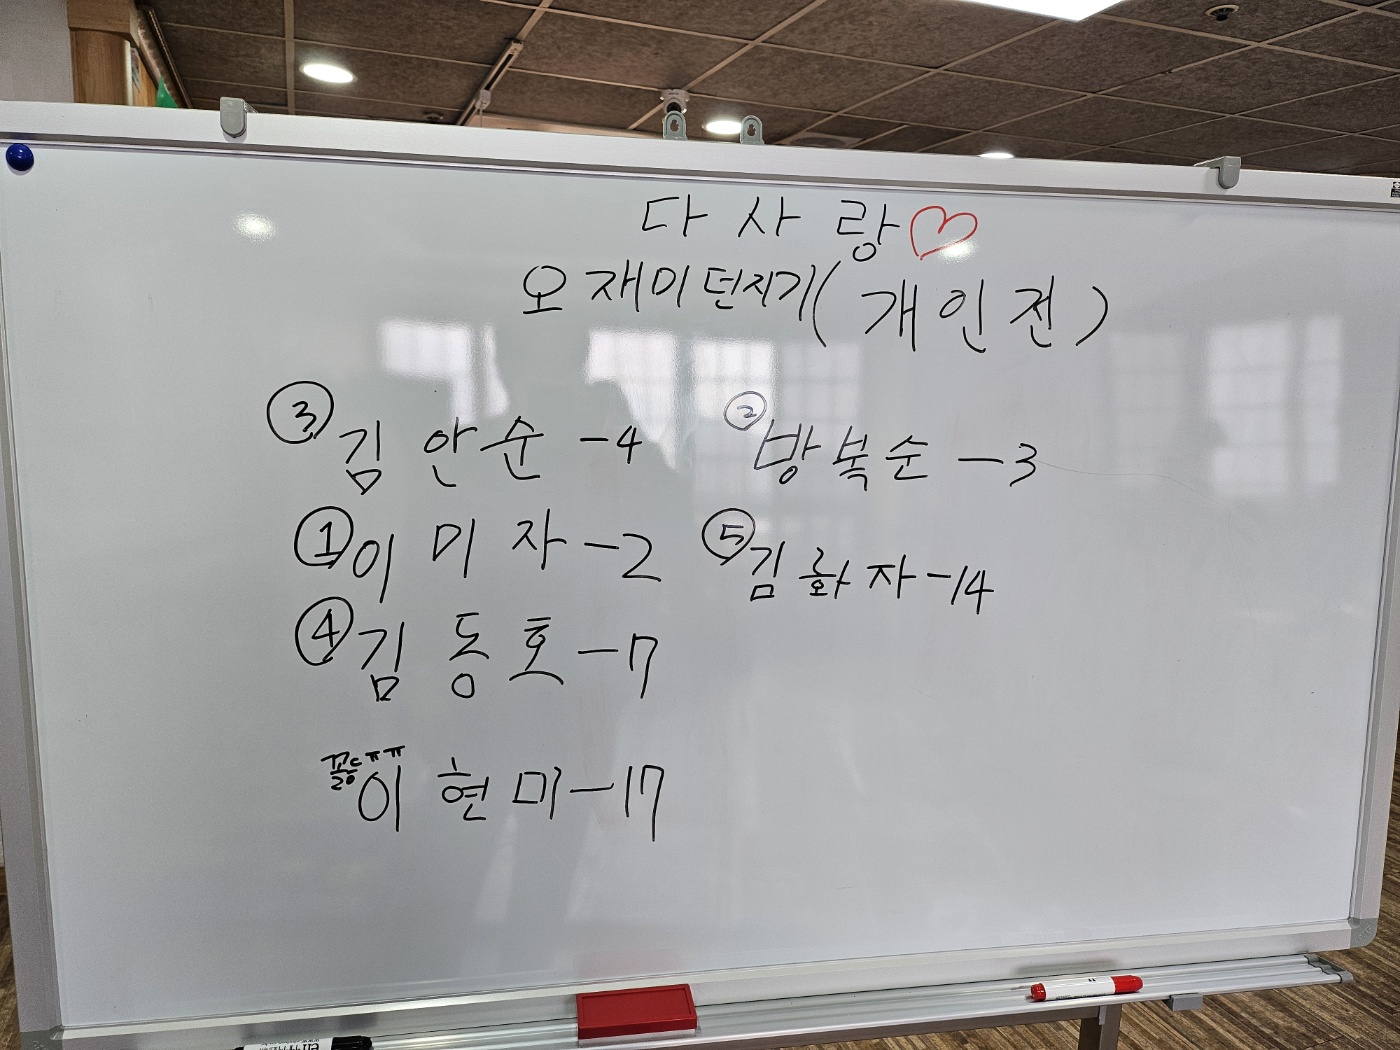 다사랑♡
오재미던지기(개인전)
③김안순-4 ②방복순-3
①이미자-2 ⑤김화자-14
④김동호-7
꼴등ㅠㅠ
이현미-17